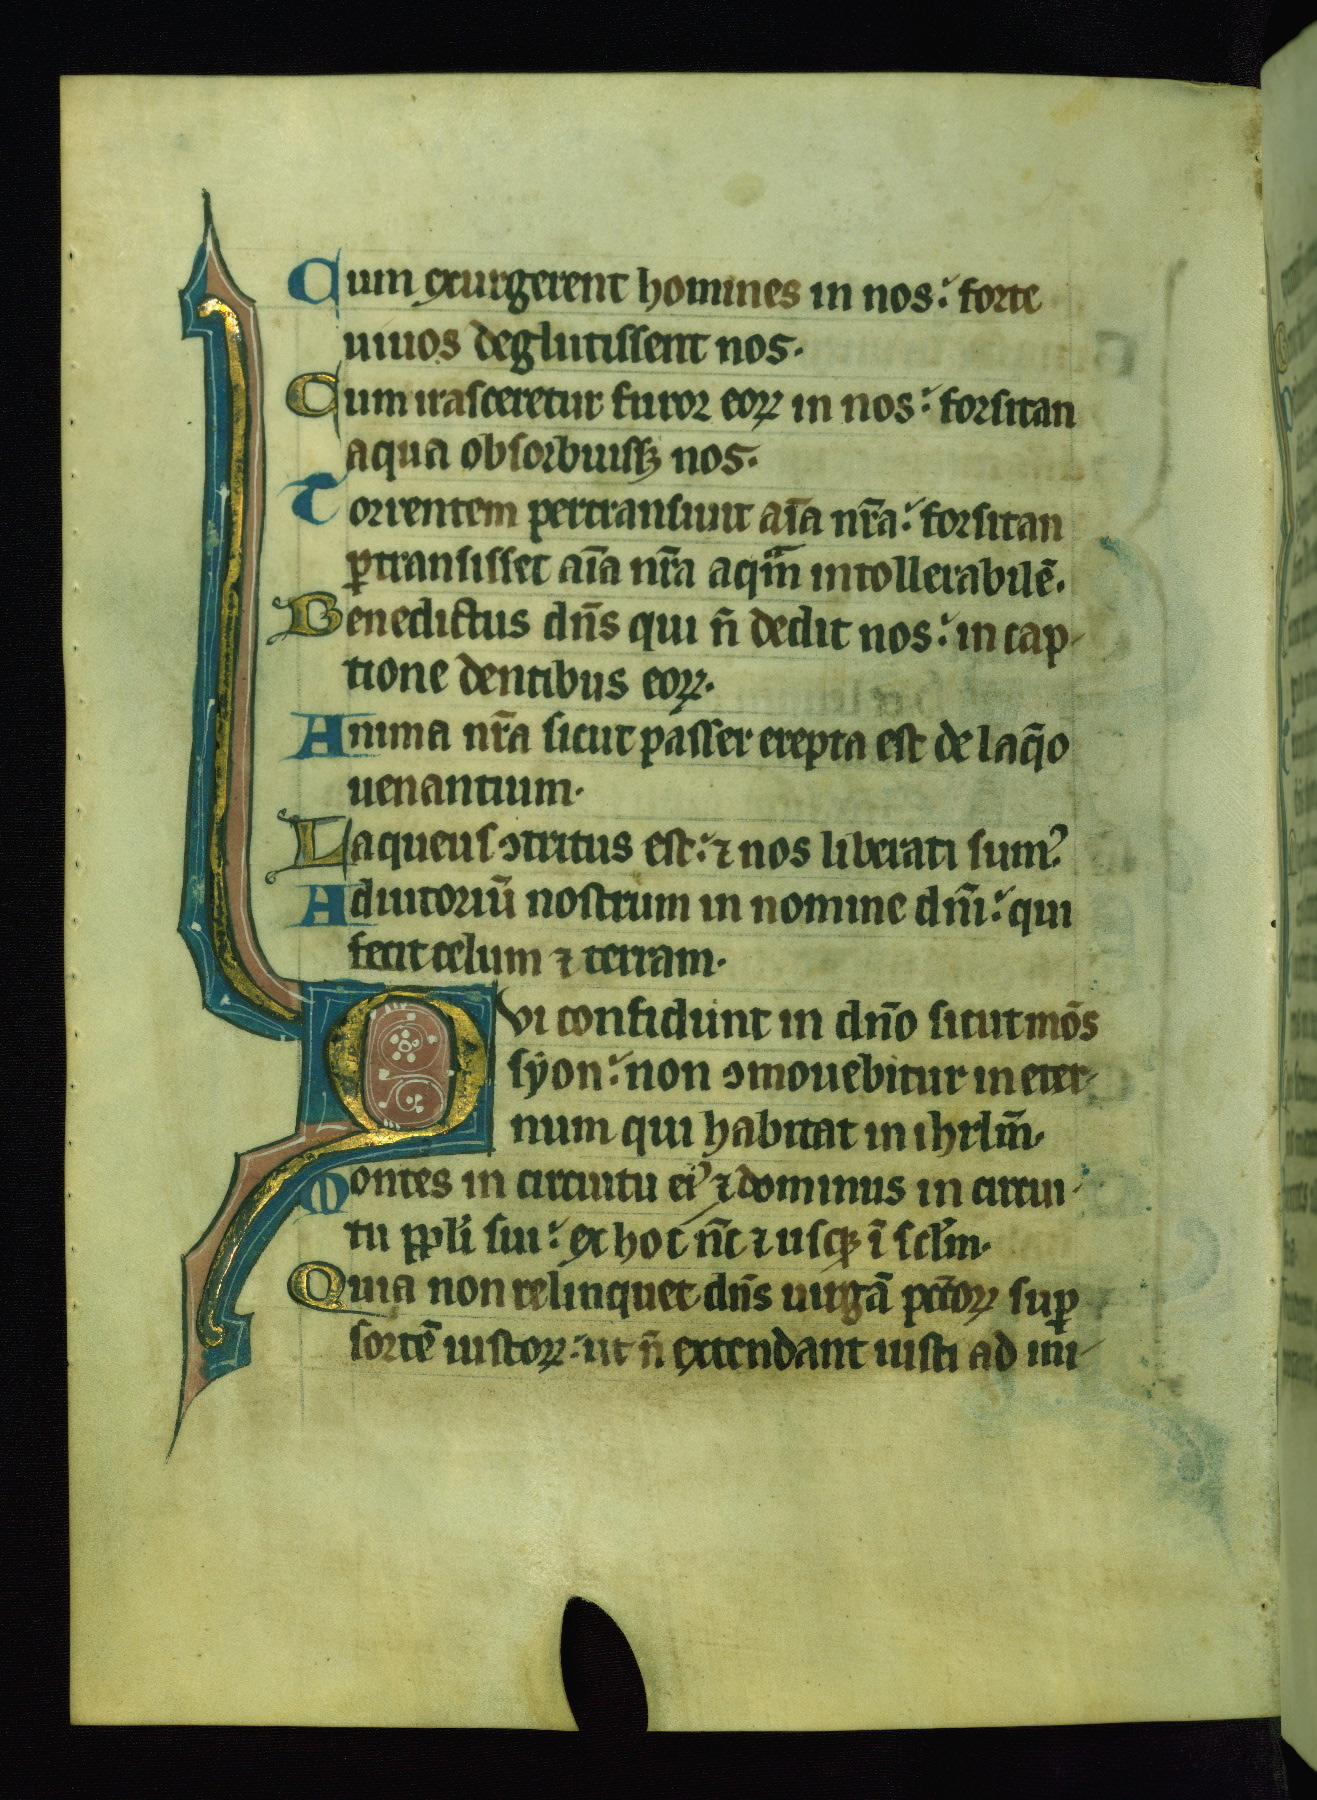 Cum exurgerent homines in nos: forte
uiuos deglutissent nos.
Cum irasceretur furor eoꝝ in nos: forsitan
aqua obsorbuissꝫ nos.
Torrentem pertransiuit aīa nr̄a: forsitan
ꝑtransisset aīa nr̄a aqm̄ intollerabilē.
Benedictus dn̄s qui n̄ dedit nos: in cap-
tione dentibus eoꝝ.
Anima nr̄a sicut passer erepta est de laq̄o
uenantium.
Laqueus ↄtritus est: ⁊ nos liberati sumꝰ.
Adiutoriū nostrum in nomine dn̄i: qui
fecit celum ⁊ terram.
Qvi confidunt in dn̄o sicut mōs
syon: non ↄmouebitur in eter-
num qui habitat in ihrlm̄.
Montes in circuitu eiꝰ ⁊ dominus in circui-
tu ppl̄i sui: ex hoc nc̄ ⁊ usqꝫ ī scl̄m.
Quia non relinquet dn̄s uirgā pct̄oꝝ suꝑ
sortē iustoꝝ: ut n̄ extendant iusti ad ini-